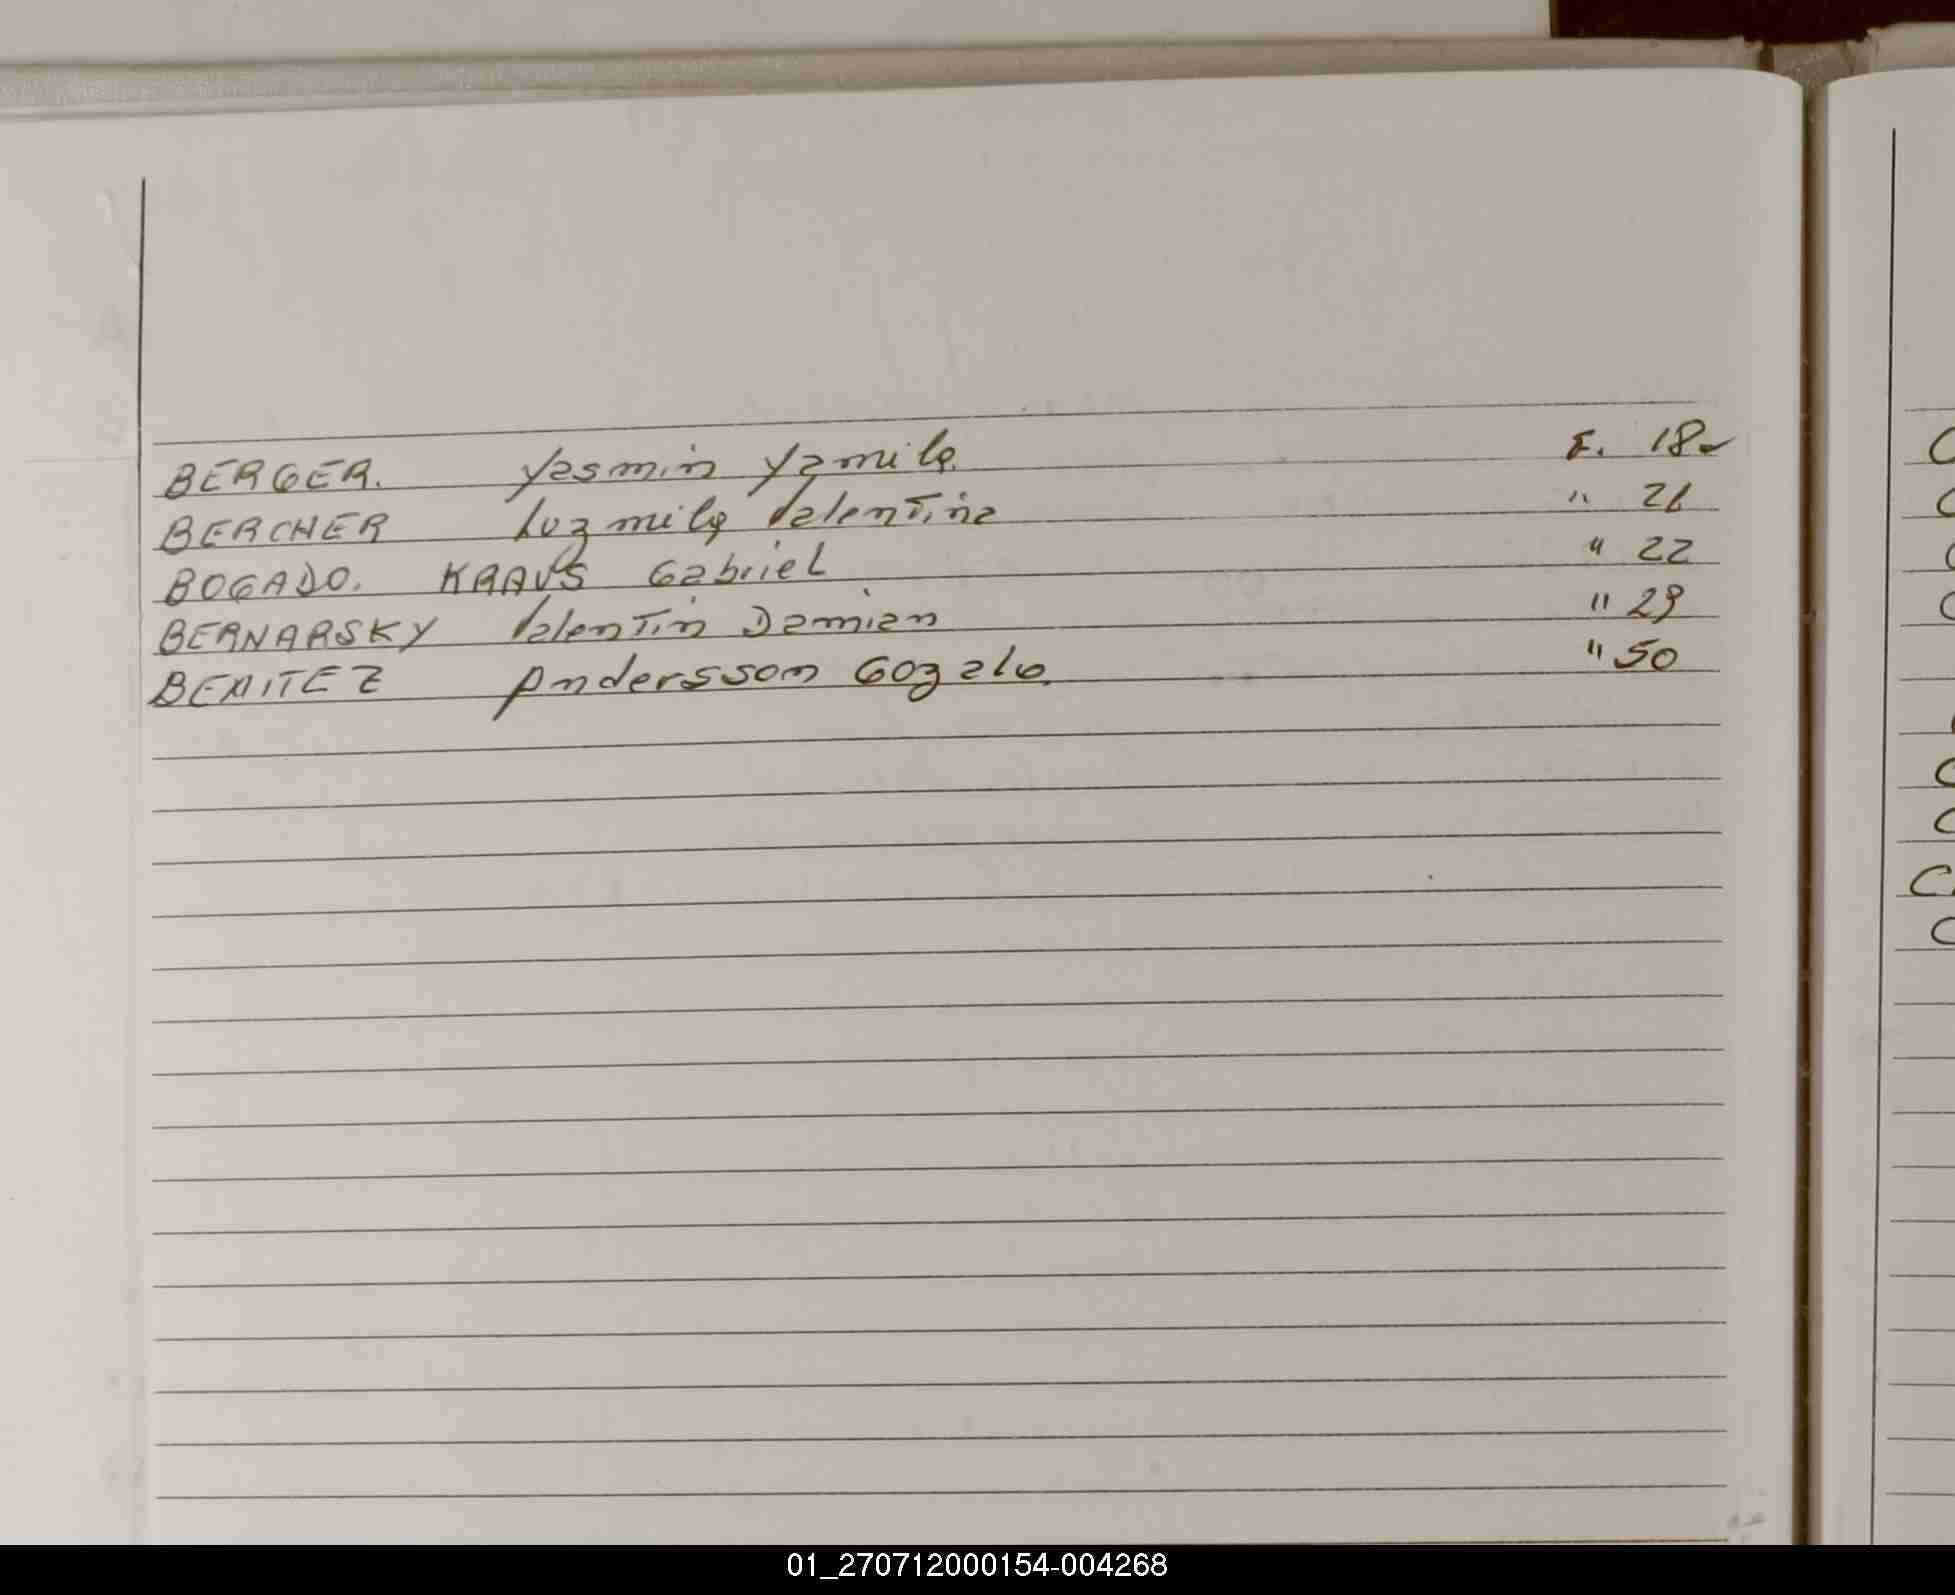 BERGER. Yasmin Yamila. F. 18v
BERCHER Luzmila Valentina " 26
BOGADO. KRAUS Gabriel " 22
BERNARSKY Valentin Damian " 29
BENITEZ Andersson Gozalo. " 50
C
C
C
C
C
C
C
C
01_270712000154-004268